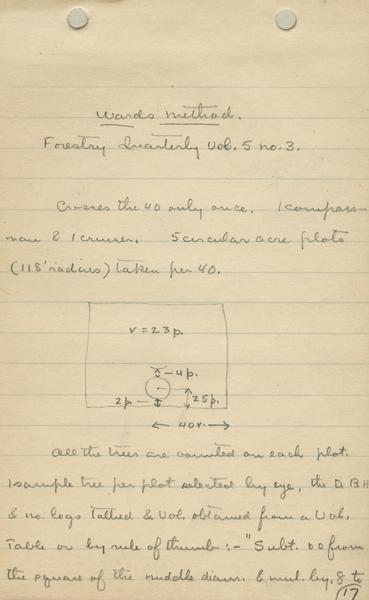 Wards Method.
Forestry Quarterly Vol. 5 no. 3.
Crosses the 40 only once. 1 compass-
man & 1 cruiser. 5 circular acre plots
(118' radius) taken per 40.
v = 23 p.
4p.
2p.
25p.
40r.
All the trees are counted on each plot.
1 sample tree per plot selected by eye, the D.B.H
& no. logs Tallied & Vol. obtained from a Vol.
Table or by rule of thumb :- "Subt. 60 from
the square of the middle diam. & mul. by .8 to
17